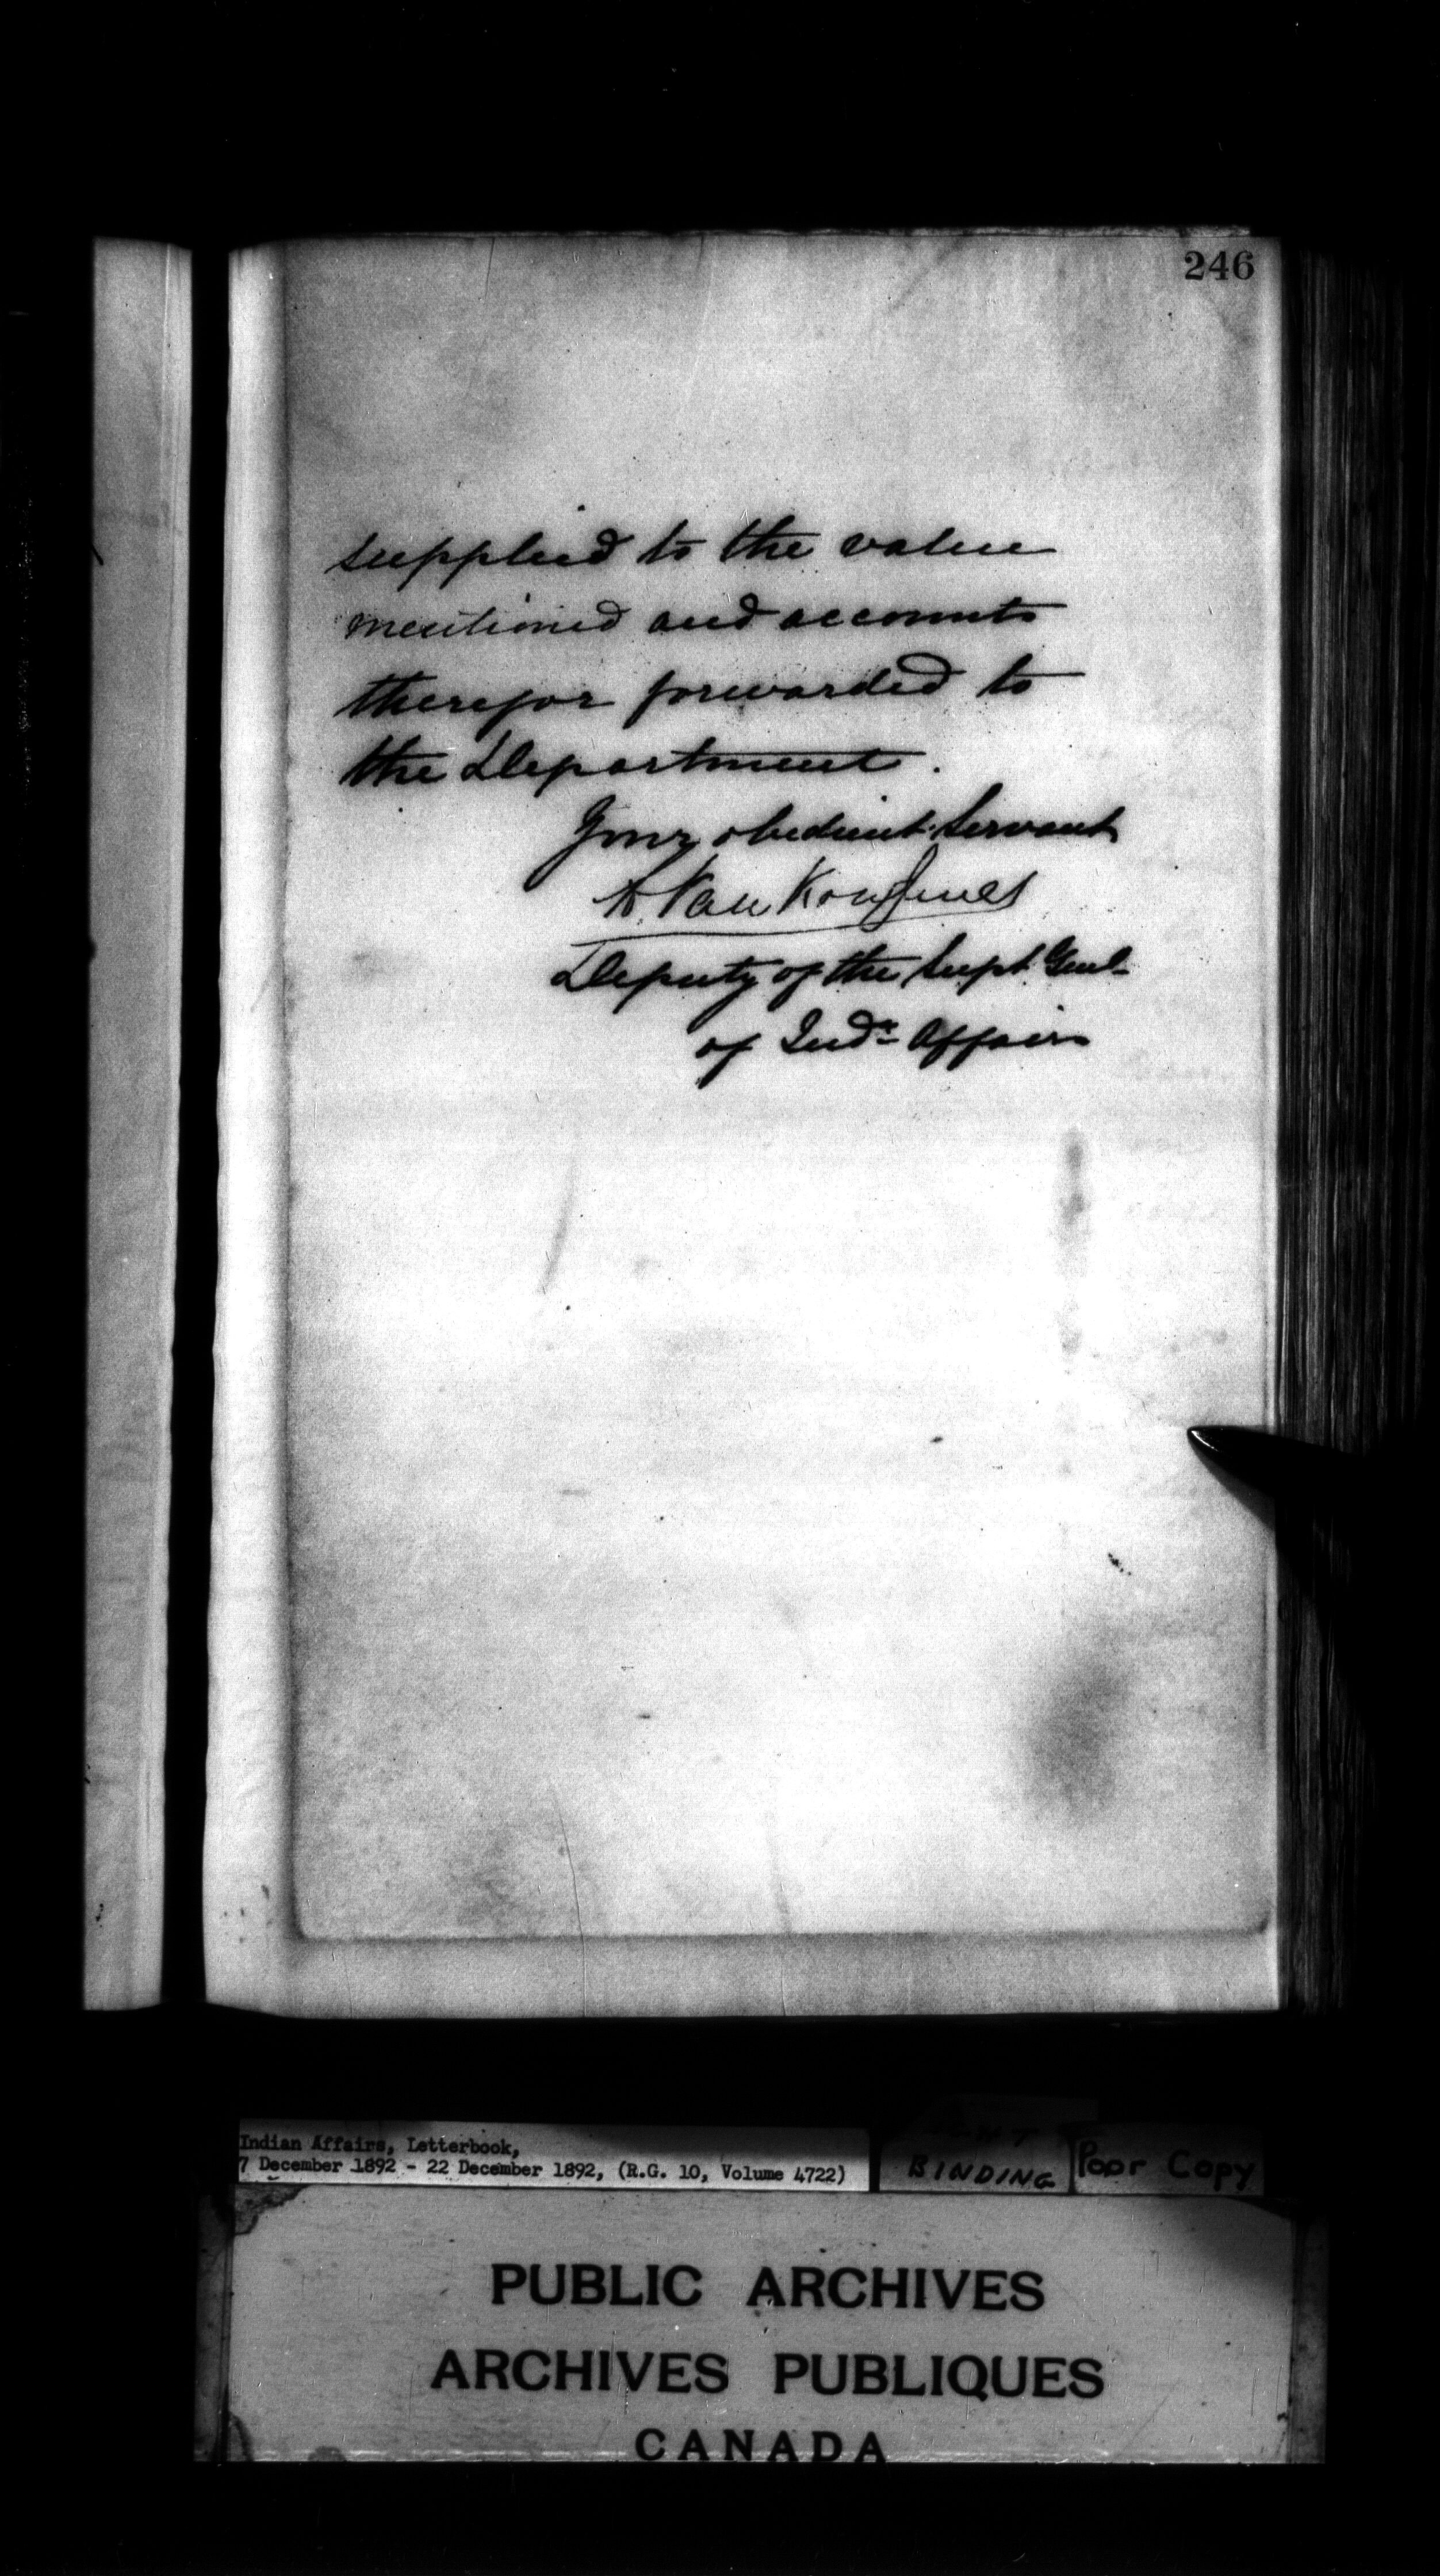 246
supplied to the value
mentioned and accounts
therefor forwarded to
the Department.
Your obedient Servant
L. VanKoughnet
Deputy of the Supt. Genl.
of Indn. Affairs
Indian Affairs, Letterbook,
7 December 1892 - 22 December 1892, (R.G. 10, Volume 4722)
BINDING
Poor Copy
PUBLIC ARCHIVES
ARCHIVES PUBLIQUES
CANADA